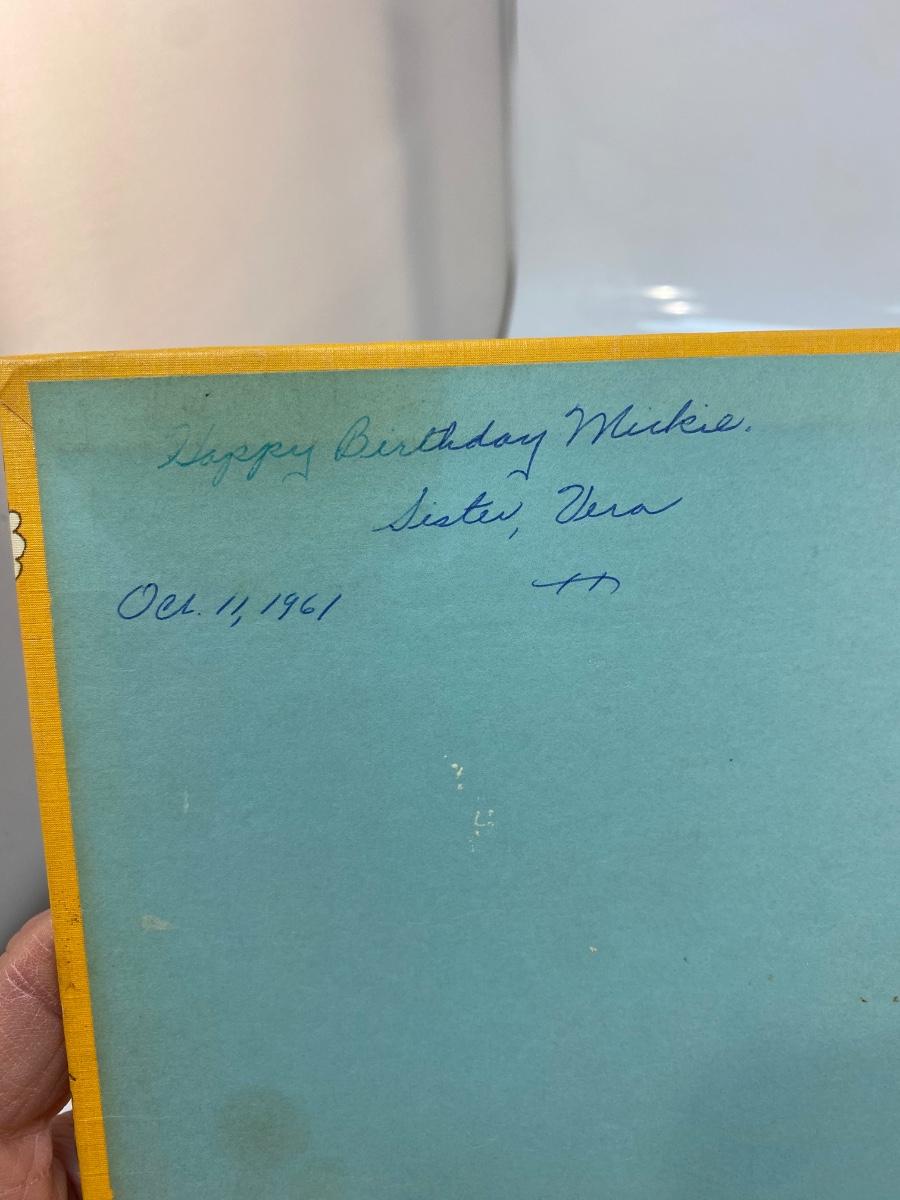 Happy Birthday Mickie.
Sister, Vera
Oct. 11, 1961